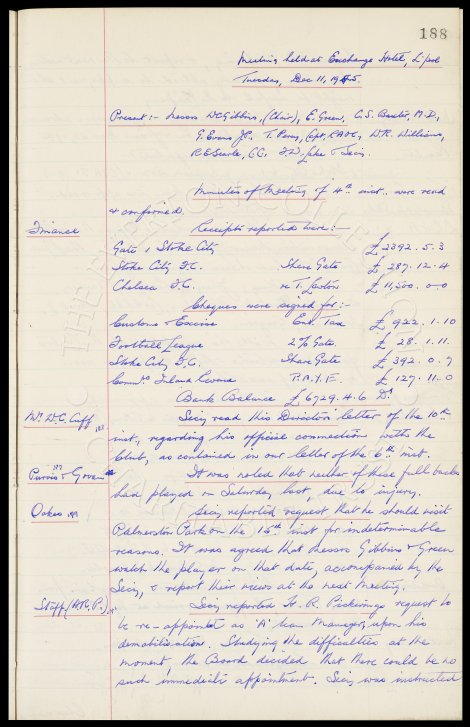 188
Meeting held at Exchange Hotel, L'pool
Tuesday, Dec 11, 1945.
Present:- Messrs W.C. Gibbins, (Chair), E. Green, C.S. Baxter, M.D,
G. Evans J.P. T. Percy, Capt, R.A.O.C, W.R. Williams,
R.E. Searle, C.C. & Secy.
Minutes of Meeting of 4th inst. were read
& confirmed.
Finance
Receipts reported were:-
Gate v Stoke City £2392.5.3
Stoke City F.C. Share Gate £ 287.12.4
Chelsea F.C. re T. Lawton £11,500.0.0
Cheques were signed for:-
Customs & Excise Ent. Tax £ 922.1.10
Football League 2% Gate £ 28.1.11.
Stoke City F.C. Share Gate £ 392.0.7
Commrs Inland Revenue P.A.Y.E. £ 127.11.0
Bank Balance £6729.4.6 Dr
Mr. W.C. Cuff
Secy read this Director's letter of the 10th
inst, regarding his official connections with the
Club, as contained in our letter of the 6th inst.
It was noted that neither of these full backs
had played on Saturday last, due to injury.
Oakes
Secy reported request that he should visit
Palmerston Park on the 15th inst for indeterminable
reasons. It was agreed that Messrs Gibbins & Green
watch the player on that date, accompanied by the
Secy, & report their views at the next Meeting.
Staff (H.R.P.)
Secy reported H. R. Pickering's request to
be re-appointed as 'A' team Manager, upon his
demobilisation. Studying the difficulties at the
moment, the Board decided that there could be no
such immediate appointment. Secy was instructed